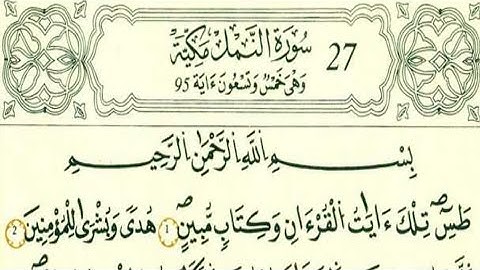 27 سُورَةُ النَّمْلِ مَكِّيَّةٌ
وَهْىَ خَمْسٌ وَتِسْعُونَ ءَايَةً 95
بِسْمِ اللَّهِ الرَّحْمَٰنِ الرَّحِيمِ
طَسٓ تِلْكَ ءَايَٰتُ الْقُرْءَانِ وَكِتَابٍ مُّبِينٍ 1 هُدًى وَبُشْرَىٰ لِلْمُؤْمِنِينَ 2